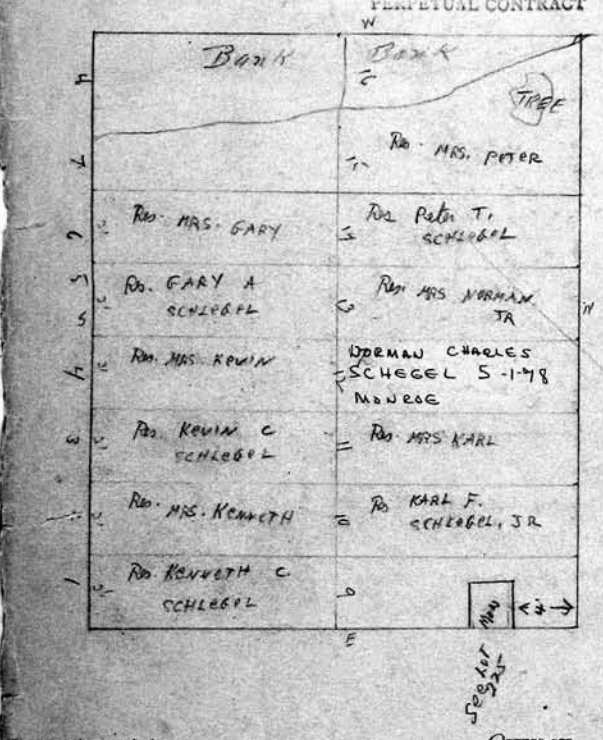 PERPETUAL CONTRACT
W
Bank Bank
TREE
Res. MRS. PETER
Res. MRS. GARY
Res Peter T.
SCHLEGEL
Rs. GARY A
SCHLEGEL
Res MRS NORMAN
JR
N
Res. MRS KEVIN
NORMAN CHARLES
SCHEGEL 5-1-98
MONROE
Res. KEVIN C
SCHLEGEL
3
11
Res. MRS KARL
Res. MRS. KENNETH
10
Rs KARL F.
SCHLEGEL, JR
Rs. KENNETH C.
SCHLEGEL
1
9
MON
4
E
See Lot
225